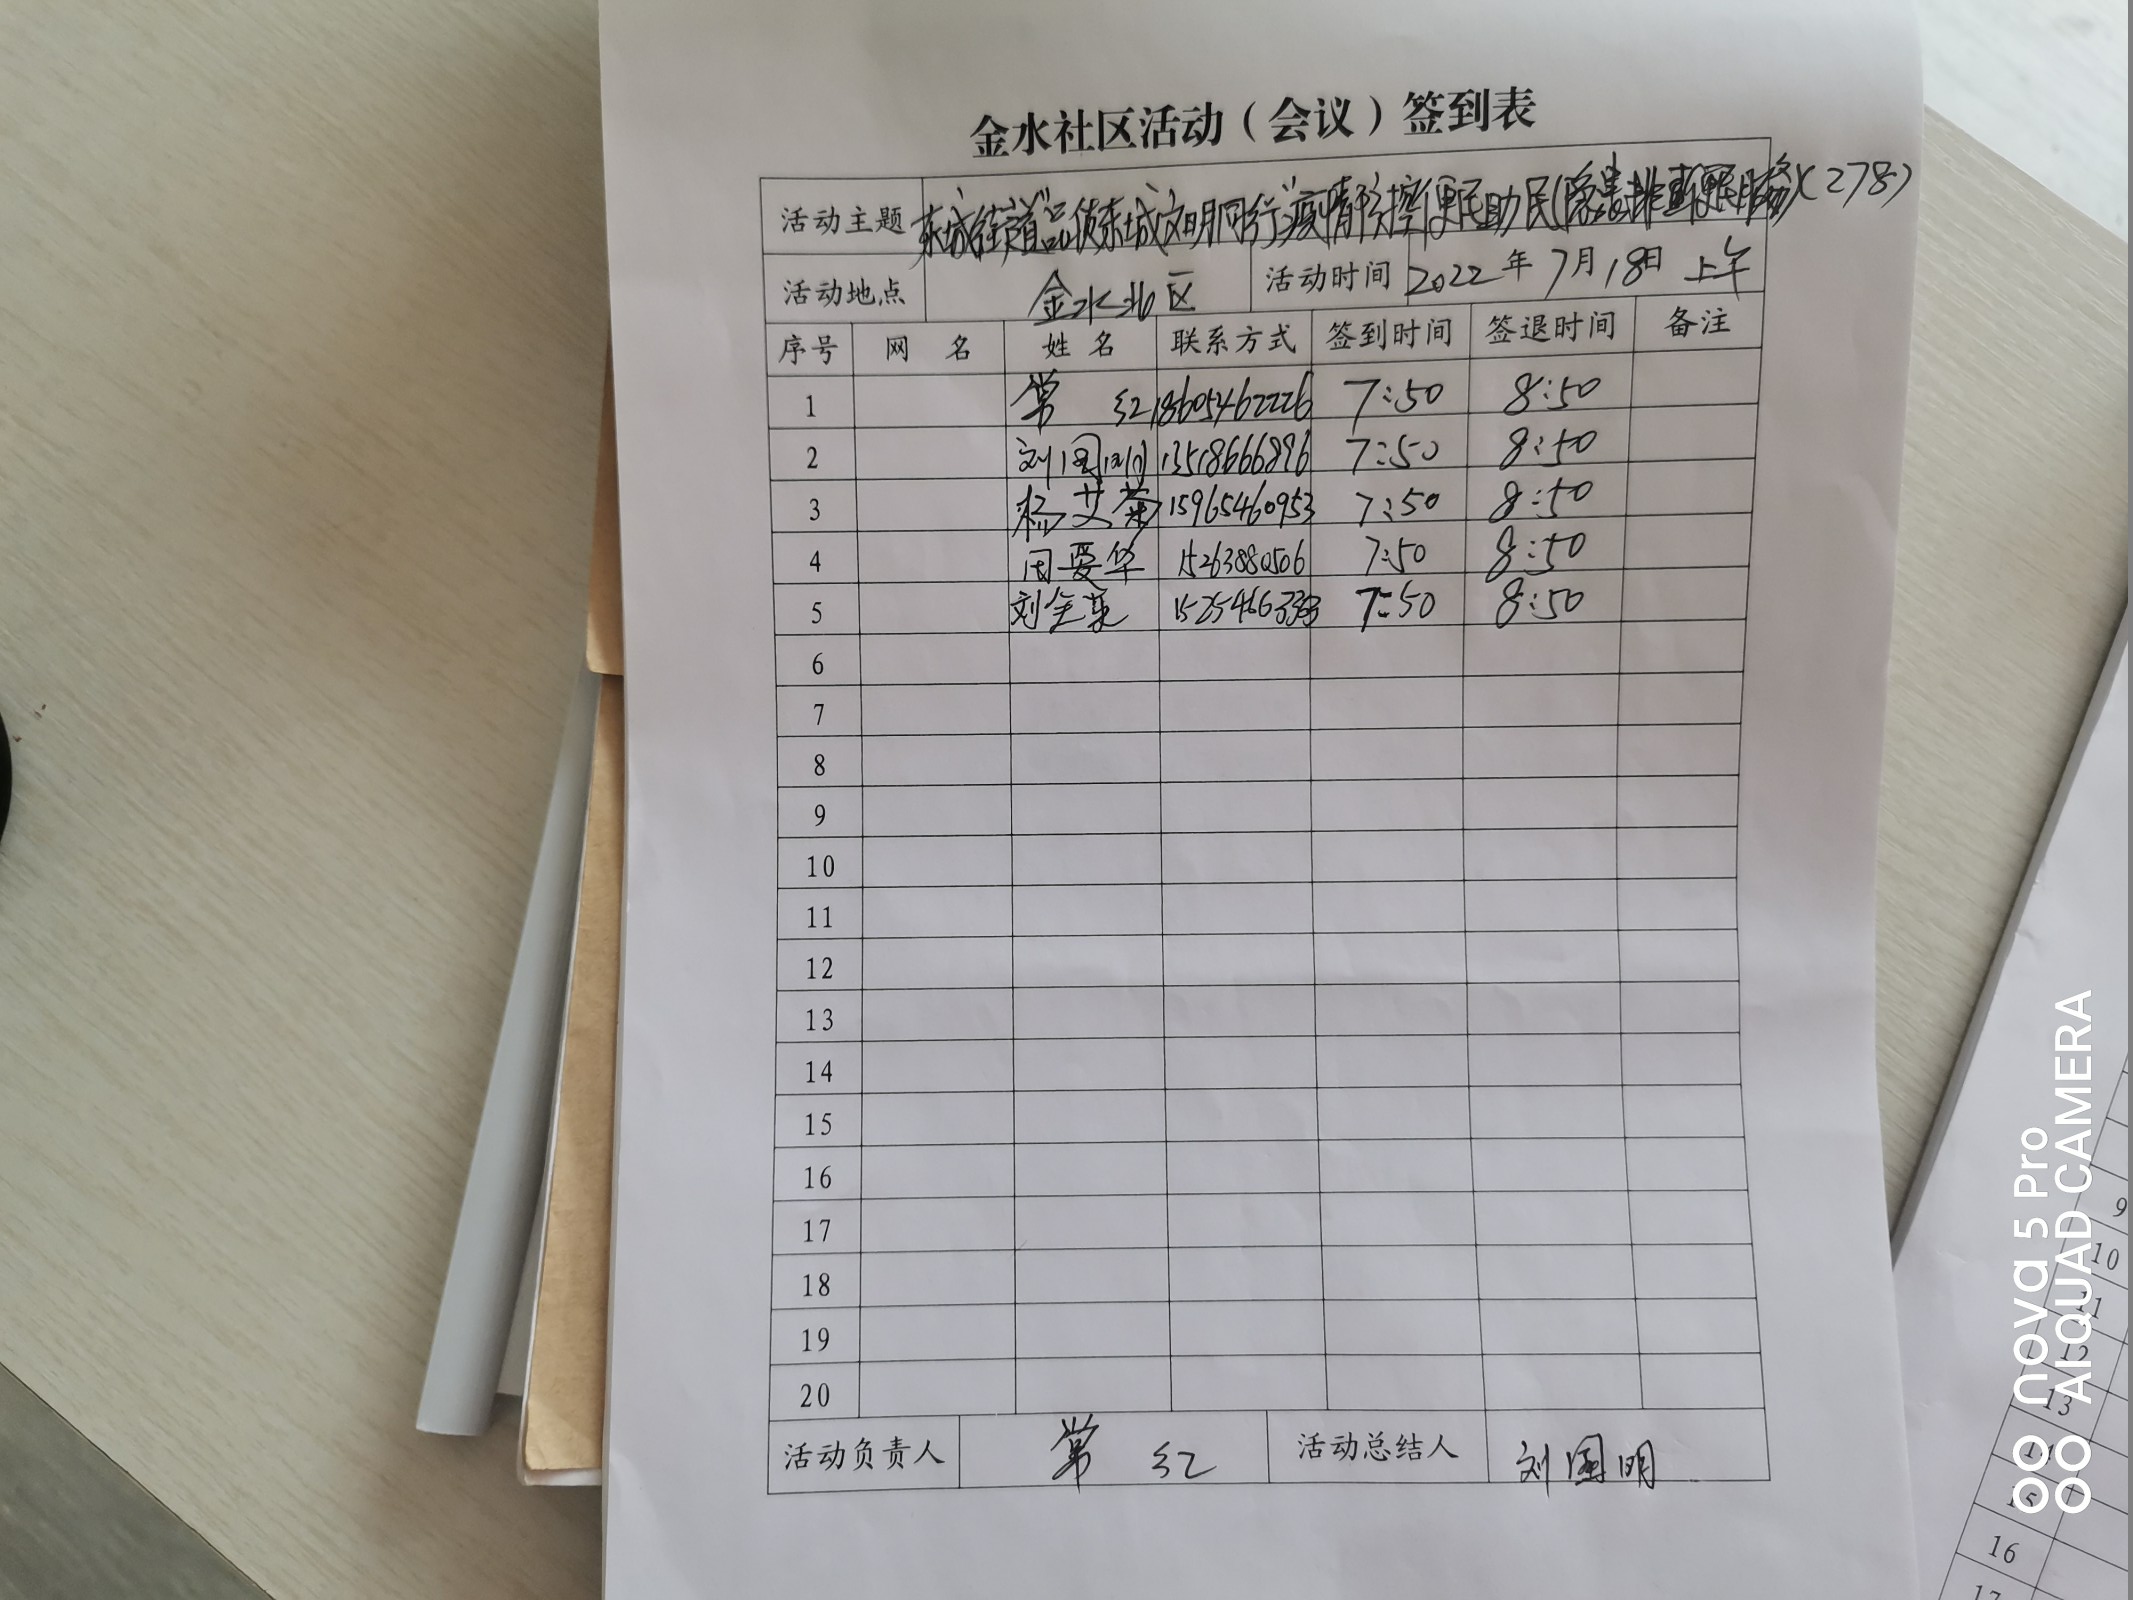 金水社区活动（会议）签到表
活动主题 东城街道"品质东城文明同行"疫情防控便民助民(隐患排查便民服务)(278)
活动地点 金水北区 活动时间 2022年7月18日 上午
序号 网 名 姓 名 联系方式 签到时间 签退时间 备注
1 常 红 18605462226 7:50 8:50
2 刘国明 13518666896 7:50 8:50
3 杨艾菊 15965460953 7:50 8:50
4 周爱华 15263880506 7:50 8:50
5 刘全英 7:50 8:50
6
7
8
9
10
11
12
13
14
15
16
17
18
19
20
活动负责人 常 红 活动总结人 刘国明
nova 5 Pro
AI QUAD CAMERA
9
10
11
12
13
14
15
16
17